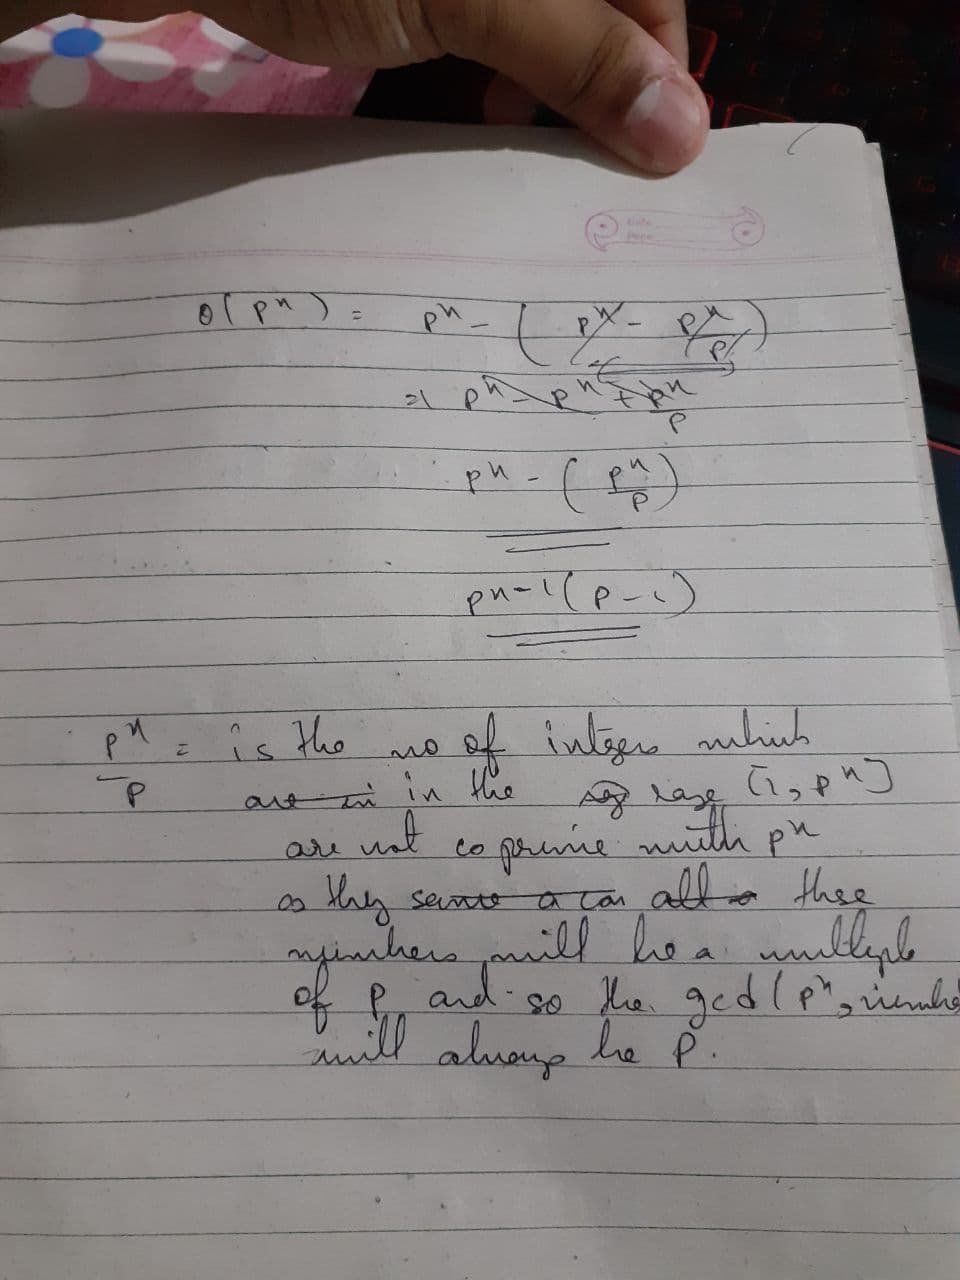 Date
θ(pⁿ) = pⁿ - (pⁿ - pⁿ/p)
=) pⁿ - pⁿ + pⁿ/p
pⁿ - (pⁿ/p)
pⁿ⁻¹(p-1)
pⁿ/p = is the no of integers which
are in in the rage [1, pⁿ]
are not co prime with pⁿ
as they same a can all a these
numbers will be a multiple
of p and so the gcd(pⁿ, number
will always be p.